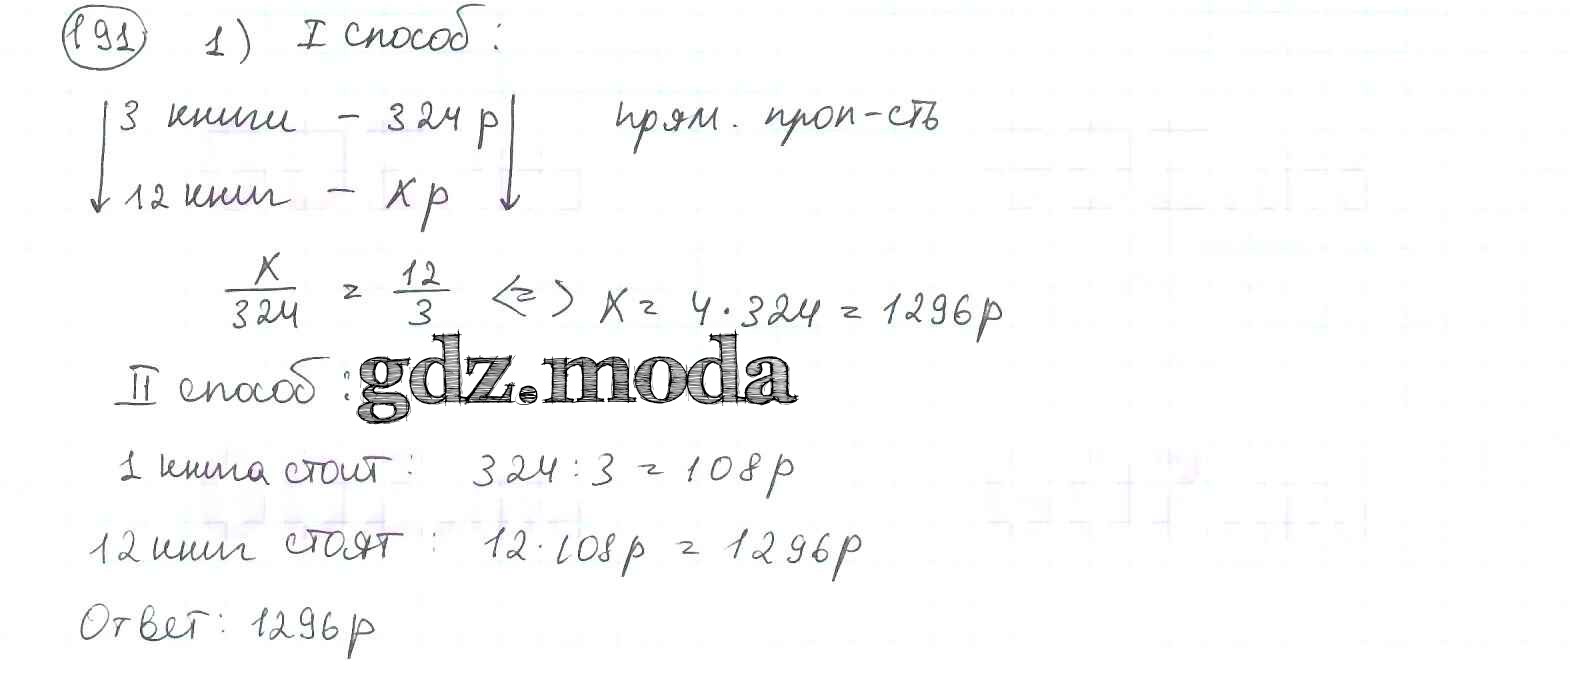 191 1) I способ:
3 книги - 324 р прям. проп-сть
12 книг - x р
x/324 = 12/3 <=> x = 4·324 = 1296 р
II способ: gdz.moda
1 книга стоит: 324:3 = 108 р
12 книг стоят: 12·108 р = 1296 р
Ответ: 1296 р